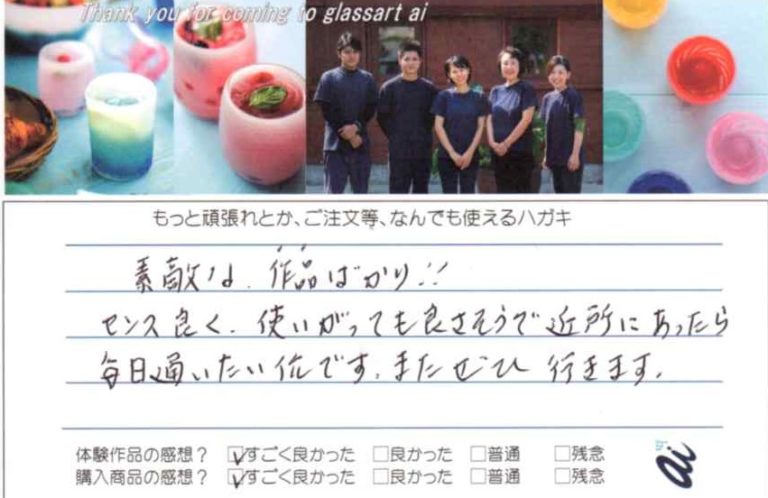 Thank you for coming to glassart ai
もっと頑張れとか、ご注文等、なんでも使えるハガキ
素敵な、作品ばかり!!
センス良く、使いがっても良さそうで近所にあったら
毎日通いたい位です。またぜひ行きます。
体験作品の感想? ☑すごく良かった □良かった □普通 □残念
購入商品の感想? ☑すごく良かった □良かった □普通 □残念
ai